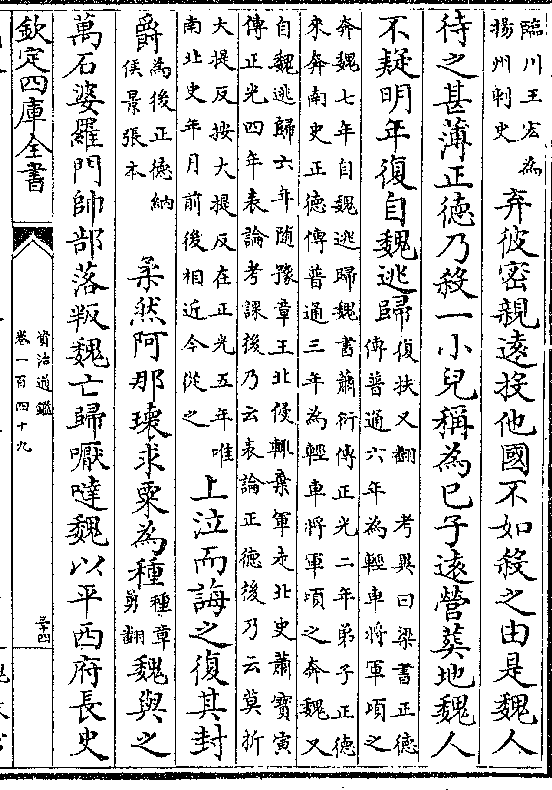 臨川王宏為
揚州刺史
弃彼密親遠投他國不如殺之由是魏人
待之甚薄正德乃殺一小兒稱為已子遠營葬地魏人
不疑明年復自魏逃歸
復扶又翻　考異曰梁書正德
傳普通六年為輕車將軍頃之
奔魏七年自魏逃歸魏書蕭衍傳正光二年弟子正德
來奔南史正德傳普通三年為輕車將軍頃之奔魏又
自魏逃歸六年随豫章王北侵輒棄軍走北史蕭寶寅
傳正光四年表論考課後乃云表論正德後乃云莫折
大提反按大提反在正光五年唯
南北史年月前後相近今從之
上泣而誨之復其封
爵
為後正德納
侯景張本
柔然阿那瓌求粟為種
種章
勇翻
魏與之
萬石婆羅門帥部落叛魏亡歸嚈噠魏以平西府長史
欽定四庫全書
資治通鑑
卷一百四十九